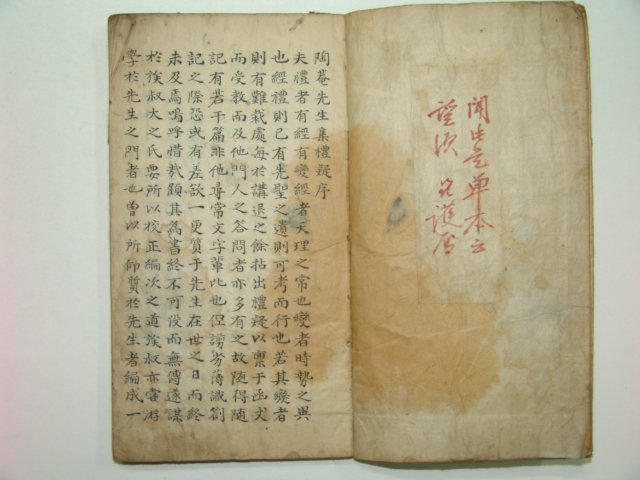 本
望
陶菴先生集禮疑序
夫禮者有經有變經者天理之常也變者時勢之異
也經禮則已有先聖之遺則可考而行也若其變者
則有難裁處每於講退之餘拈出禮疑以稟于函丈
而受教而及他門人之答問者亦多有之故随得随
記有若干篇非他尋常文字輩比也但謭劣薄識劄
記之際恐或有差欲一更質于先生在世之日而終
未及焉嗚呼惜哉顧其爲書終不可没而無傳遂謀
於族叔大之氏要所以校正編次之道族叔亦甞游
學於先生之門者也曽以所師質於先生者編成一